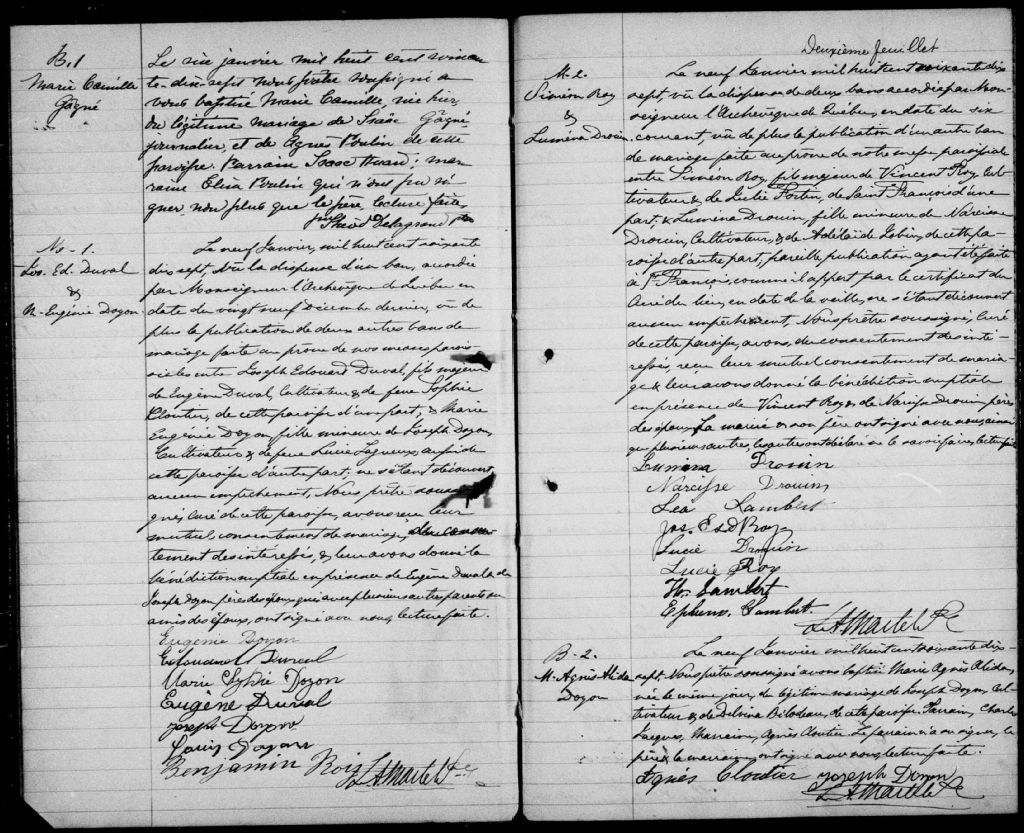 B. 1
Marie Camille
Gagné
Le six janvier mil huit cent soixan
te-dix-sept nous prêtre soussigné a
vons baptisé Marie Camille, née hier,
du légitime mariage de Isaac Gagné
journalier, et de Agnès Poulin de cette
paroisse. Parrain Isaac Huard; mar
raine Eliza Poulin qui n'ont pu si
gner non plus que le père. Lecture faite.
Théod Delagrave Ptre
M. - 1.
Jos. Ed. Duval
&
M. Eugénie Doyon.
Le neuf Janvier, mil huit cent soixante
dix sept, Vu la dispense d'un ban, accordée
par Monseigneur l'Archevêque de Québec en
date du vingt neuf Décembre dernier, vu de
plus la publication de deux autres bans de
mariage faite au prône de nos messes parois-
siales entre Joseph Edouard Duval, fils majeur
de Eugène Duval, Cultivateur & de feue Sophie
Cloutier, de cette paroisse d'une part; & Marie
Eugénie Doyon, fille mineure de Joseph Doyon,
Cultivateur & de feue Lucie Lagueux aussi de
cette paroisse d'autre part; ne s'étant découvert
aucun empêchement, Nous prêtre soussi-
gné, Curé de cette paroisse, avons reçu leur
mutuel consentement de mariage, du consen-
tement des intéressés, & leur avons donné la
bénédiction nuptiale en présence de Eugène Duval & de
Joseph Doyon pères des époux, qui avec plusieurs autres parents ou
amis des époux, ont signé avec nous, lecture faite.
Eugénie Doyon
Edouard Duval
Marie Sylvie Doyon
Eugène Duval
Joseph Doyon
Louis Doyon
Benjamin Rois
L. A. Martel Ptre
Deuxième feuillet
M - 2.
Siméon Roy
&
Lumina Drouin.
Le neuf Janvier mil huit cent soixante dix
sept, vu la dispense de deux bans accordée par Mon-
seigneur l'Archevêque de Québec, en date du six
courant, vu de plus la publication d'un autre ban
de mariage faite au prône de notre messe paroissiale
entre Siméon Roy, fils majeur de Vincent Roy, Cul-
tivateur & de Lucie Fortin, de Saint François d'une
part, & Lumina Drouin, fille mineure de Narcisse
Drouin, Cultivateur, & de Adélaïde Jobin, de cette pa-
roisse d'autre part, pareille publication ayant été faite
à St. François, comme il appert par le certificat du
Curé du lieu, en date de la veille, ne s'étant découvert
aucun empêchement, Nous prêtre soussigné, Curé
de cette paroisse, avons, du consentement des inté-
ressés, reçu leur mutuel consentement de maria-
ge & leur avons donné la bénédiction nuptiale
en présence de Vincent Roy & de Narcisse Drouin, pères
des époux. La mariée & son père ont signé avec nous, ainsi
que plusieurs autres, les autres ont déclaré ne le savoir faire, lecture faite.
Lumina Drouin
Narcisse Drouin
Léa Lambert
Jos. Esd Roy
Lucie Drouin
Lucie Roy
Ths. Lambert
Ephrem. Lambert.
L. A. Martel Ptre
B - 2.
M. Agnès Alida
Doyon
Le neuf Janvier mil huit cent soixante dix-
sept. Nous prêtre soussigné avons baptisé Marie Agnès Alida,
née le même jour, du légitime mariage de Joseph Doyon, Cul-
tivateur & de Delvina Bilodeau, de cette paroisse. Parrain, Charles
Jacques, Marraine, Agnès Cloutier. Le parrain n'a su signer, le
père & la marraine ont signé avec nous, lecture faite.
Agnès Cloutier Joseph Doyon
L. A. Martel Ptre